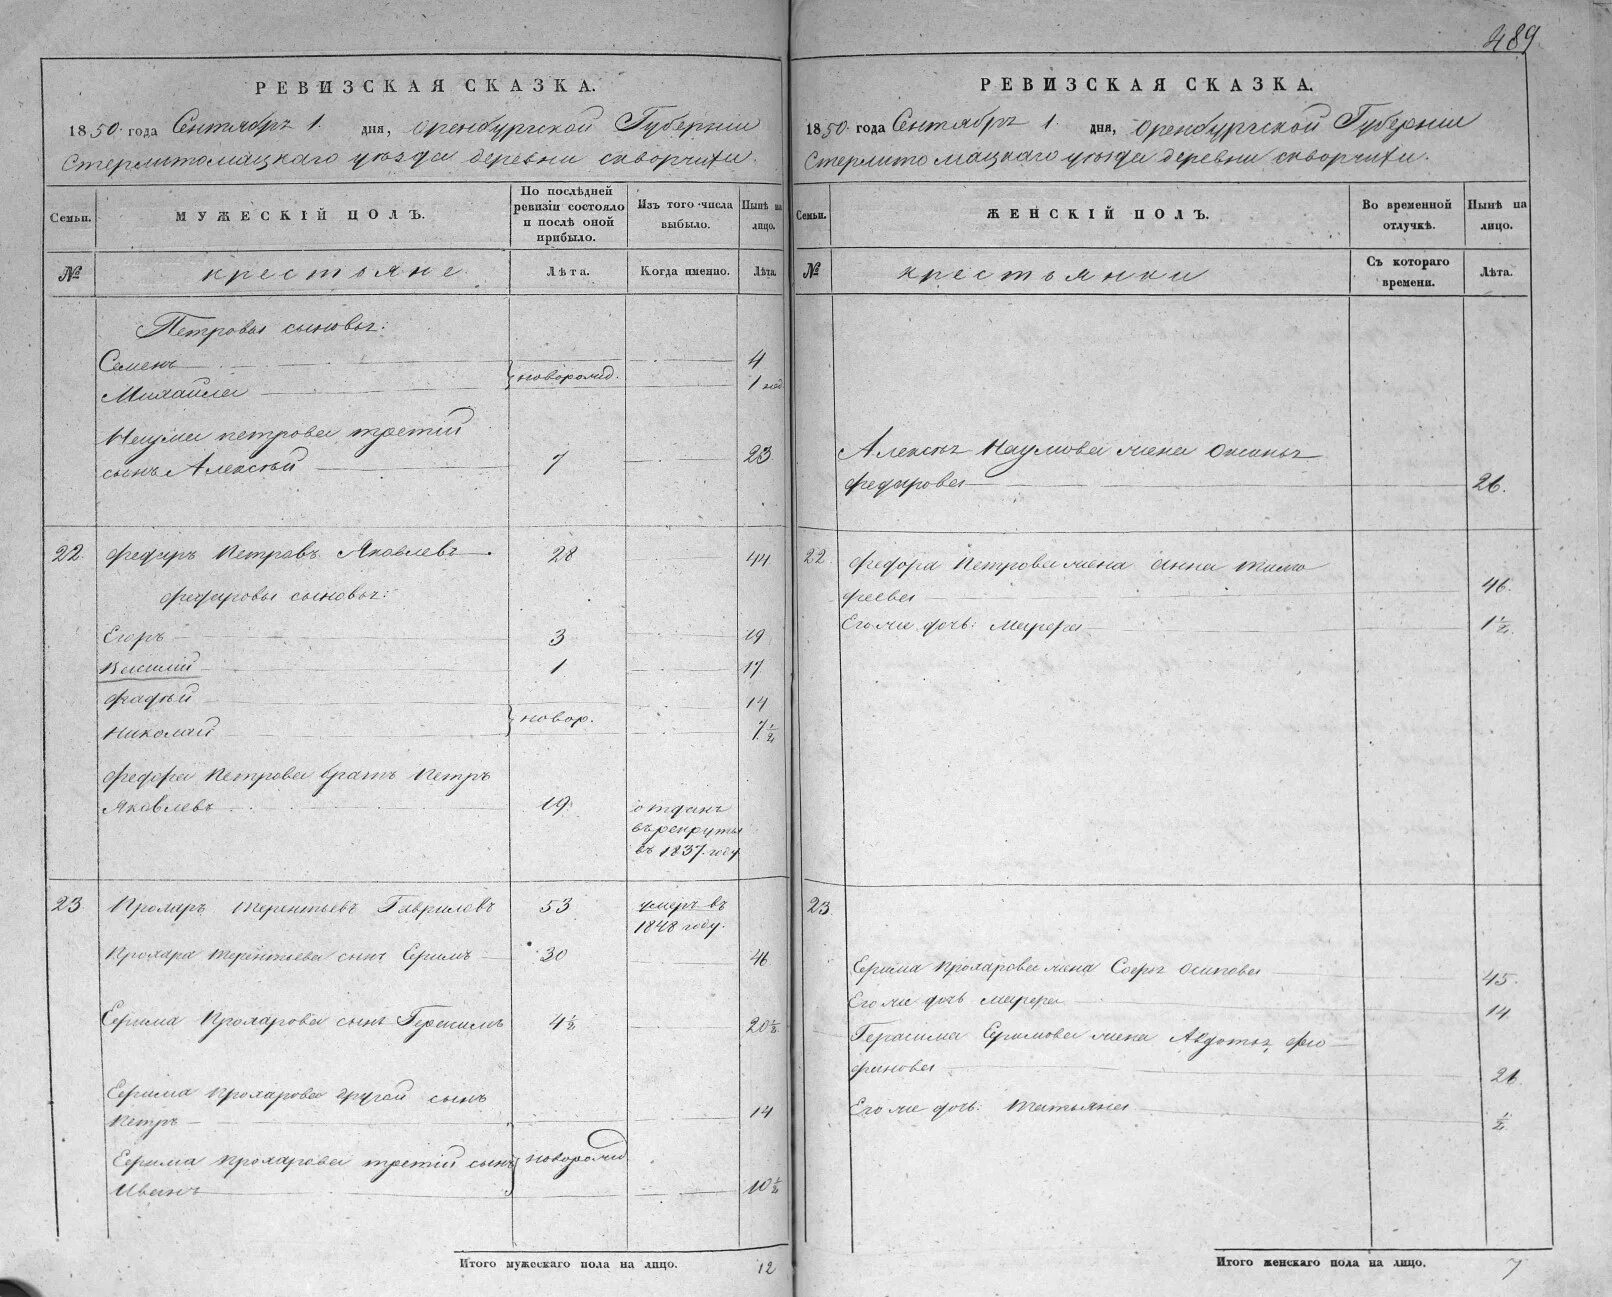 489
РЕВИЗСКАЯ СКАЗКА.
1850 года Сентября 1. дня, Оренбургской Губернiи
Стерлитомацкаго уѣзда деревни скворчихи.
Семьи.
МУЖЕСКIЙ ПОЛЪ.
По послѣдней ревизiи состояло и послѣ оной прибыло.
Изъ того числа выбыло.
Нынѣ на лицо.
№
крестьяне
Лѣта.
Когда именно.
Лѣта.
Петровы сыновья:
Семенъ 4
Михайла новорожд. 1
Наума петрова третiй
сынъ Алексѣй 7 23
22. федоръ Петровъ Яковлевъ 28 44
федоровы сыновья:
Егоръ 3 19
Василiй 1 17
фадѣй 14
Николай новор. 7 1/2
федора Петрова братъ Петръ
Яковлевъ 19 отданъ
въ рекруты
въ 1837. году
23. Прохоръ терентьевъ Гавриловъ 53 умеръ въ
1848 году.
Прохора терентьева сынъ Ефимъ 30 46
Ефима Прохорова сынъ Герасимъ 4 1/2 20 1/2
Ефима Прохорова другой сынъ
Петръ 14
Ефима Прохорова третiй сынъ новорожд
Иванъ 10 1/2
Итого мужескаго пола на лицо. 12
РЕВИЗСКАЯ СКАЗКА.
1850 года Сентября 1. дня, Оренбургской Губернiи
Стерлитомацкаго уѣзда деревни скворчихи.
Семьи.
ЖЕНСКIЙ ПОЛЪ.
Во временной отлучкѣ.
Нынѣ на лицо.
№
крестьянки
Съ котораго времени.
Лѣта.
Алексѣя Наумова жена Оксинья
федорова 26.
22. федора Петрова жена Анна тимо
феева 46.
Его же дочь: Марфа 1 1/2.
23
Ефима Прохорова жена Софья осипова 45.
Его же дочь марфа 14
Герасима Ефимова жена Авдотья
21
Его же дочь: татьяна 1/2
Итого женскаго пола на лицо. 7